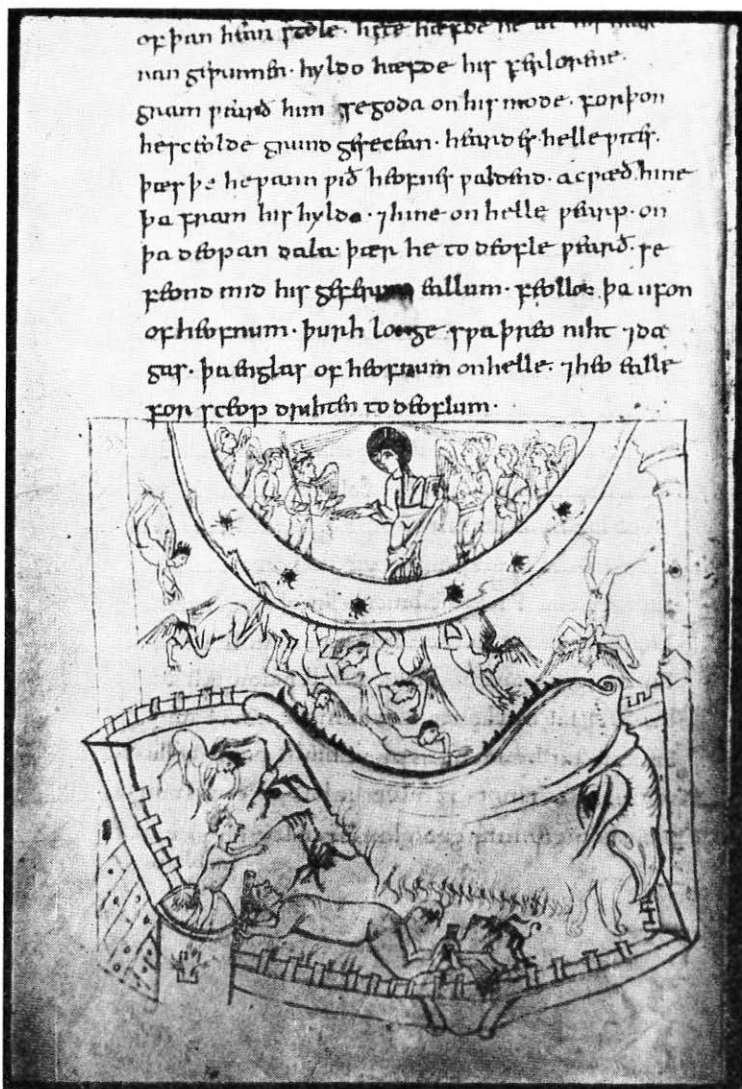 of þan hean stole · hete hæfde he æt his hear
ran geƿunnen · hyldo hæfde his ferlorene ·
gram ƿearð him se goda on his mode · forþon
he sceolde grund gesecean · heardes helle ƿites ·
þæs þe he ƿann ƿið heofnes ƿaldend · acƿæð hine
þa fram his hyldo · ⁊ hine on helle ƿearp · on
þa deopan dala · þær he to deofle ƿearð · se
feond mid his geferum eallum · feollon þa ufon
of heofnum · þurh longe sƿa þreo niht ⁊ da
gas · þa englas of heofnum on helle · ⁊ heo ealle
for sceop drihten to deoflum ·